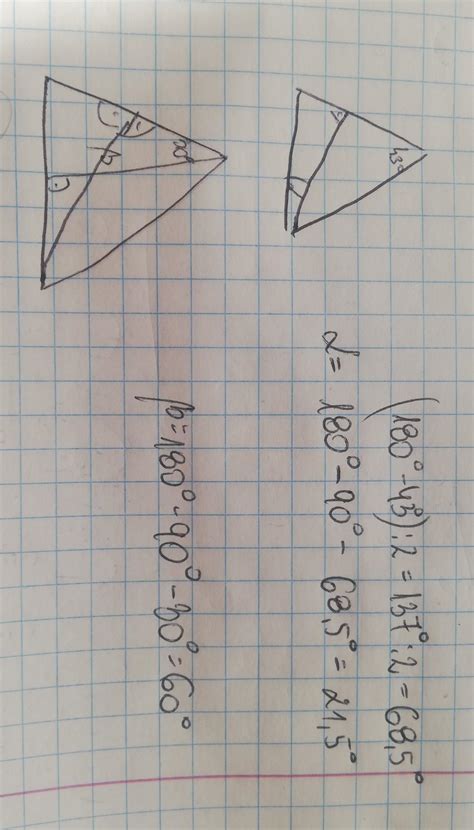 43°
(180° - 43°) : 2 = 137° : 2 = 68,5°
α = 180° - 90° - 68,5° = 21,5°
β
β = 180° - 90° - 30° = 60°